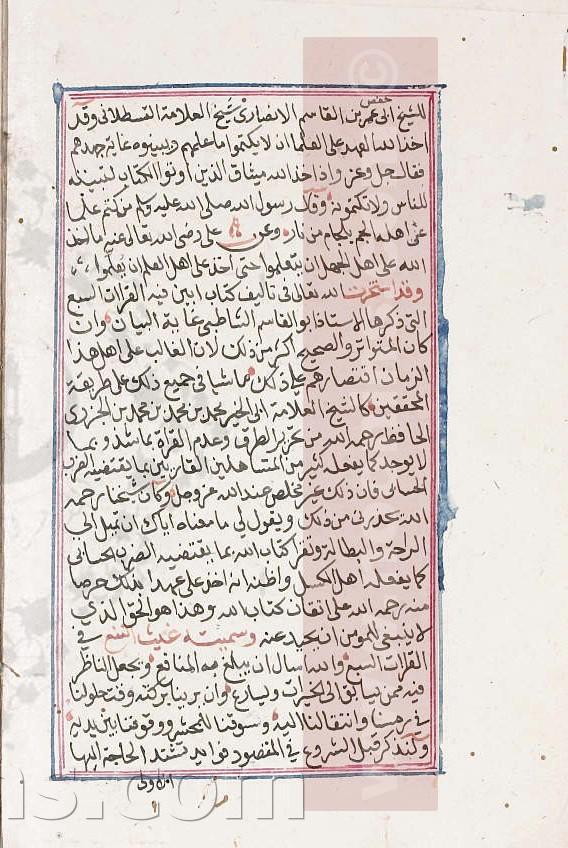 حفص
للشيخ ابى عمر بن القاسم الانصارى شيخ العلامة القسطلانى وقد
اخذ الله العهد على العلما ان لا يكتموا ما علمهم ويبينوه غاية جهدهم
فقال جل وعز واذ اخذ الله ميثاق الذين اوتوا الكتاب لتبيننه
للناس ولا تكتمونه وقال رسول الله صلى الله عليه وسلم من كتم علما
عن اهله الجم بلجام من نار وعن على رضى الله تعالى عنه ما اخذ
الله على اهل الجهل ان يتعلموا حتى اخذ على اهل العلم ان يعلموا
وقد استخرت الله تعالى في تاليف كتاب ابين فيه القرات السبع
التى ذكرها الاستاذ ابو القاسم الشاطبى غاية البيان وان
كان المتواتر والصحيح اكثر من ذلك لان الغالب على اهل هذا
الزمان اقتصارهم على ذلك ماشيا في جميع ذلك على طريقة
المحققين كالشيخ العلامة ابى الخير محمد بن محمد بن محمد بن الجزرى
الحافظ رحمه الله من تحرير الطرق وعدم القراة بما شذ وبما
لا يوجد كما يفعله كثير من المتساهلين القارئين بما يقتضيه الضرب
الحسابى فان ذلك غير مخلص عند الله عز وجل وكان شيخنا رحمه
الله يحذرنى من ذلك ويقول لى ما معناه اياك ان تميل الى
الراحة والبطالة وتقرا كتاب الله بما يقتضيه الضرب الحسابى
كما يفعله اهل الكسل واظنه انه اخذ على عهدا بذلك حرصا
منه رحمه الله على اتقان كتاب الله وهذا هو الحق الذى
لا ينبغى للمومن ان يحيد عنه وسميته غيث النفع في
القرات السبع والله اسال ان يبلغ به المنافع ويجعل الناظر
فيه ممن يسابق الى الخيرات ويسارع وان يرينا بركته وقت حلولنا
في رمسنا وانتقالنا اليه وسوقنا للمحشر ووقوفنا بين يديه
ولنذكر قبل الشروع في المقصود فوايد تشتد الحاجة اليها
الاولى
is.com